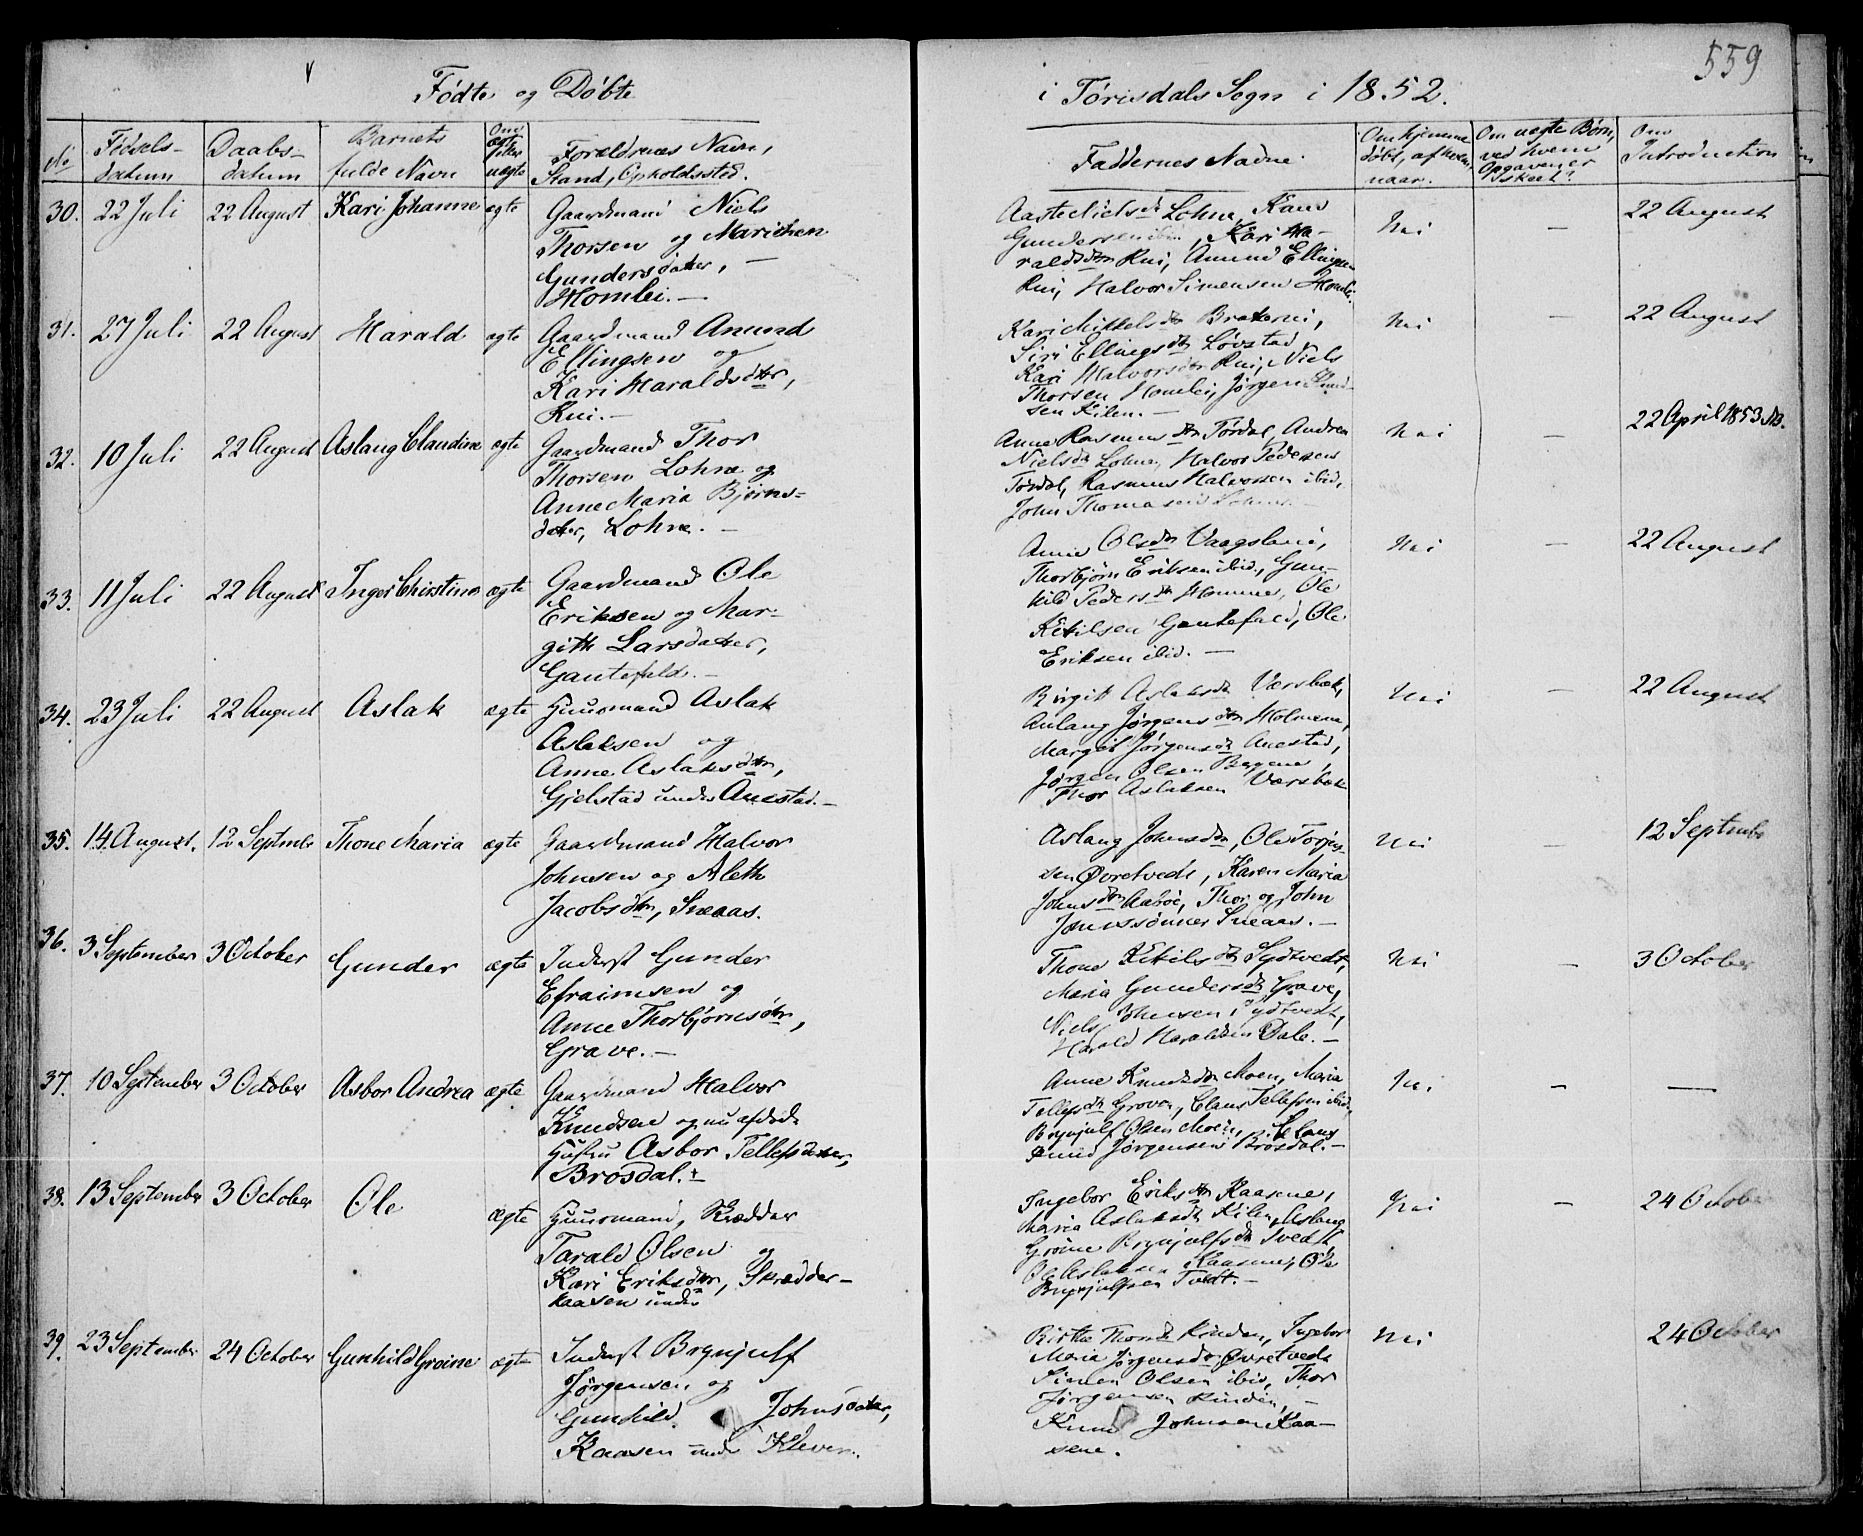 559
Fødte og Døbte
i Tørisdals Sogn i 1852.
No
Fødsels-
datum
Daabs-
datum
Barnets
fulde Navn
Om
ægte
eller
uægte
Forældrenes Navn,
Stand, Opholdssted.
Faddernes Navne.
Om hjemme
døbt, af hvem,
naar.
Om uægte Børn,
ved hvem
Opgaven er
skeet?
Om
Introduction
30. 22 Juli 22 August Kari Johanne ægte
Gaardmand Niels
Thorsen og Marichen
Gundersdatter, —
Homlei. —
Aaste Nielsdtr Lohne,
Gundersen ibid, Kari Ha-
raldsdtr Rui, Anund Ellingsen
Rui, Halvor Simensen Homlei.
Nei — 22 August
31. 27 Juli 22 August Harald ægte
Gaardmand Anund
Ellingsen og
Kari Haraldsdtr,
Rui. —
Kari Mikkelsdtr
Siri Ellingsdtr Løvstad
Kari Halvorsdtr Rui, Niels
Thorsen Homlei, Jørgen Knud-
sen Kilen. —
Nei — 22 August
32. 10 Juli 22 August Aslaug Claudine ægte
Gaardmand Thor
Thorsen Lohne og
Anne Maria Bjørns-
datter, Lohne. —
Anne Rasmusdtr Tørdal, Andrea
Nielsdtr Lohne, Halvor Pedersen
Tørdal, Rasmus Halvorsen ibid,
John Thomasen Lohne.
Nei — 22 April 1853
33. 11 Juli 22 August Inger Christine ægte
Gaardmand Ole
Eriksen og Mar-
gith Larsdatter,
Gautefald. —
Anne Olsdtr Vaagsland,
Thorbjørn Eriksen ibid., Gun-
hild Pedersdtr Homme, Ole
Ketilsen Gautefald, Ole
Eriksen ibid. —
Nei — 22 August
34. 23 Juli 22 August Aslak ægte
Huusmand Aslak
Aslaksen og
Anne Aslaksdtr,
Gjelstad under Anestad. —
Birgit Aslaksdtr Værsbæk,
Anlaug Jørgensdtr Holmene,
Margit Jørgensdtr Anestad,
Jørgen Olsen
Thor Aslaksen Værsbæk
Nei — 22 August
35. 14 August. 12 Septmbr Thone Maria ægte
Gaardmand Halvor
Johnsen og Aleth
Jacobsdtr, Sneaas.
Aslaug Johnsdtr, Ole Torjus-
sen Øvretvedt, Karen Maria
Johnsdtr Aasøe, Thor og John
Jonssønner Sneaas. —
Nei — 12 Septmbr
36. 3 September 3 October Gunder ægte
Inderst Gunder
Efraimsen og
Anne Thorbjørnsdtr,
Grave. —
Thone Ketilsdtr Sydtvedt,
Maria Gundersdtr Grave,
Niels Johnsen Sydtvedt,
Harald Haraldsen Dale. —
Nei — 3 October
37. 10 September 3 October Asbor Andrea ægte
Gaardmand Halvor
Knudsen og nu afdøde
Hustru Asbor Tellefsdatter,
Brøsdal. —
Anne Knudsdtr Moen, Maria
Tellefsdtr Groven, Claus Tellefsen ibid,
Brynjulf Olsen Moen, Claus
Jørgensen Brøsdal. —
Nei — —
38. 13 September 3 October Ole ægte
Huusmand, Skrædder
Tarald Olsen og
Kari Eriksdtr, Skrædder-
kaasen under
Ingebor Eriksdtr Kaasene,
Maria Aslaksdtr Kilen, Aslaug
Groine Brynjulfsdtr Tvedt
Ole Aslaksen Kaasene, Ole
Brynjulfsen Tvedt. —
Nei — 24 October
39. 23 September 24 October Gunhild Groine ægte
Inderst Brynjulf
Jørgensen og
Gunhild Johnsdatter,
Kaasen under Kleven.
Birthe Thorsdtr Kinden, Ingebor
Maria Jørgensdtr Øvretvedt
Simen Olsen ibid, Thor
Jørgensen Kinden, —
Knud Johnsen Kaa-
sene.
Nei 24 October